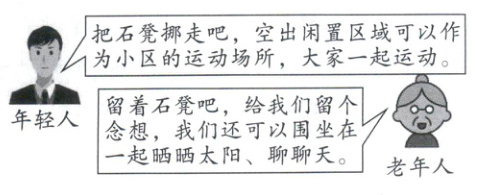 把石凳挪走吧，空出闲置区域可以作
为小区的运动场所，大家一起运动。
年轻人
留着石凳吧，给我们留个
念想，我们还可以围坐在
一起晒晒太阳、聊聊天。
老年人